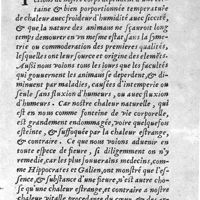 taine & bien portionnée temperature
de chaleur avec froideur d'humidité avec siccité,
& que la nature des animaux ne sçauroit long
temps demourer en un mesme estat, sans la sime-
trie ou commoderation des premieres qualités,
lesquelles ont leur source et origine des elemēts.
Aussi nous voions tous les iours que les facultés
qui gouvernent les animaux se deperdent, & di-
minuent par maladies, causées d'intemperie ou
seules sans fluxion d'humeurs, ou avec fluxion
d'humeurs. Car notre chaleur naturelle, qui
est en nous comme fonteine de vie corporelle,
est grandement endommagée, voire quelquefois
esteinte, & suffoquée par la chaleur estrange,
& contraire. Ce que nous voions advenir en
toute espece de fieure, si diligemment on n'y
remedie, car les plus souuerains medecins, comme
Hippocrates et Galien, ont monstré que l'es-
sence, & substance d'une fieure, n'est autre cho-
se qu'une chaleur estrange, et contraire a nostre
chaleur vitalle procedante du cœur, & des ar-